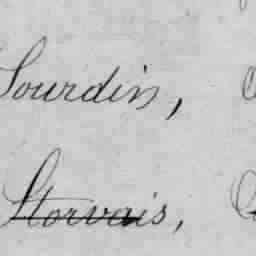 Sourdin,
Storvais,